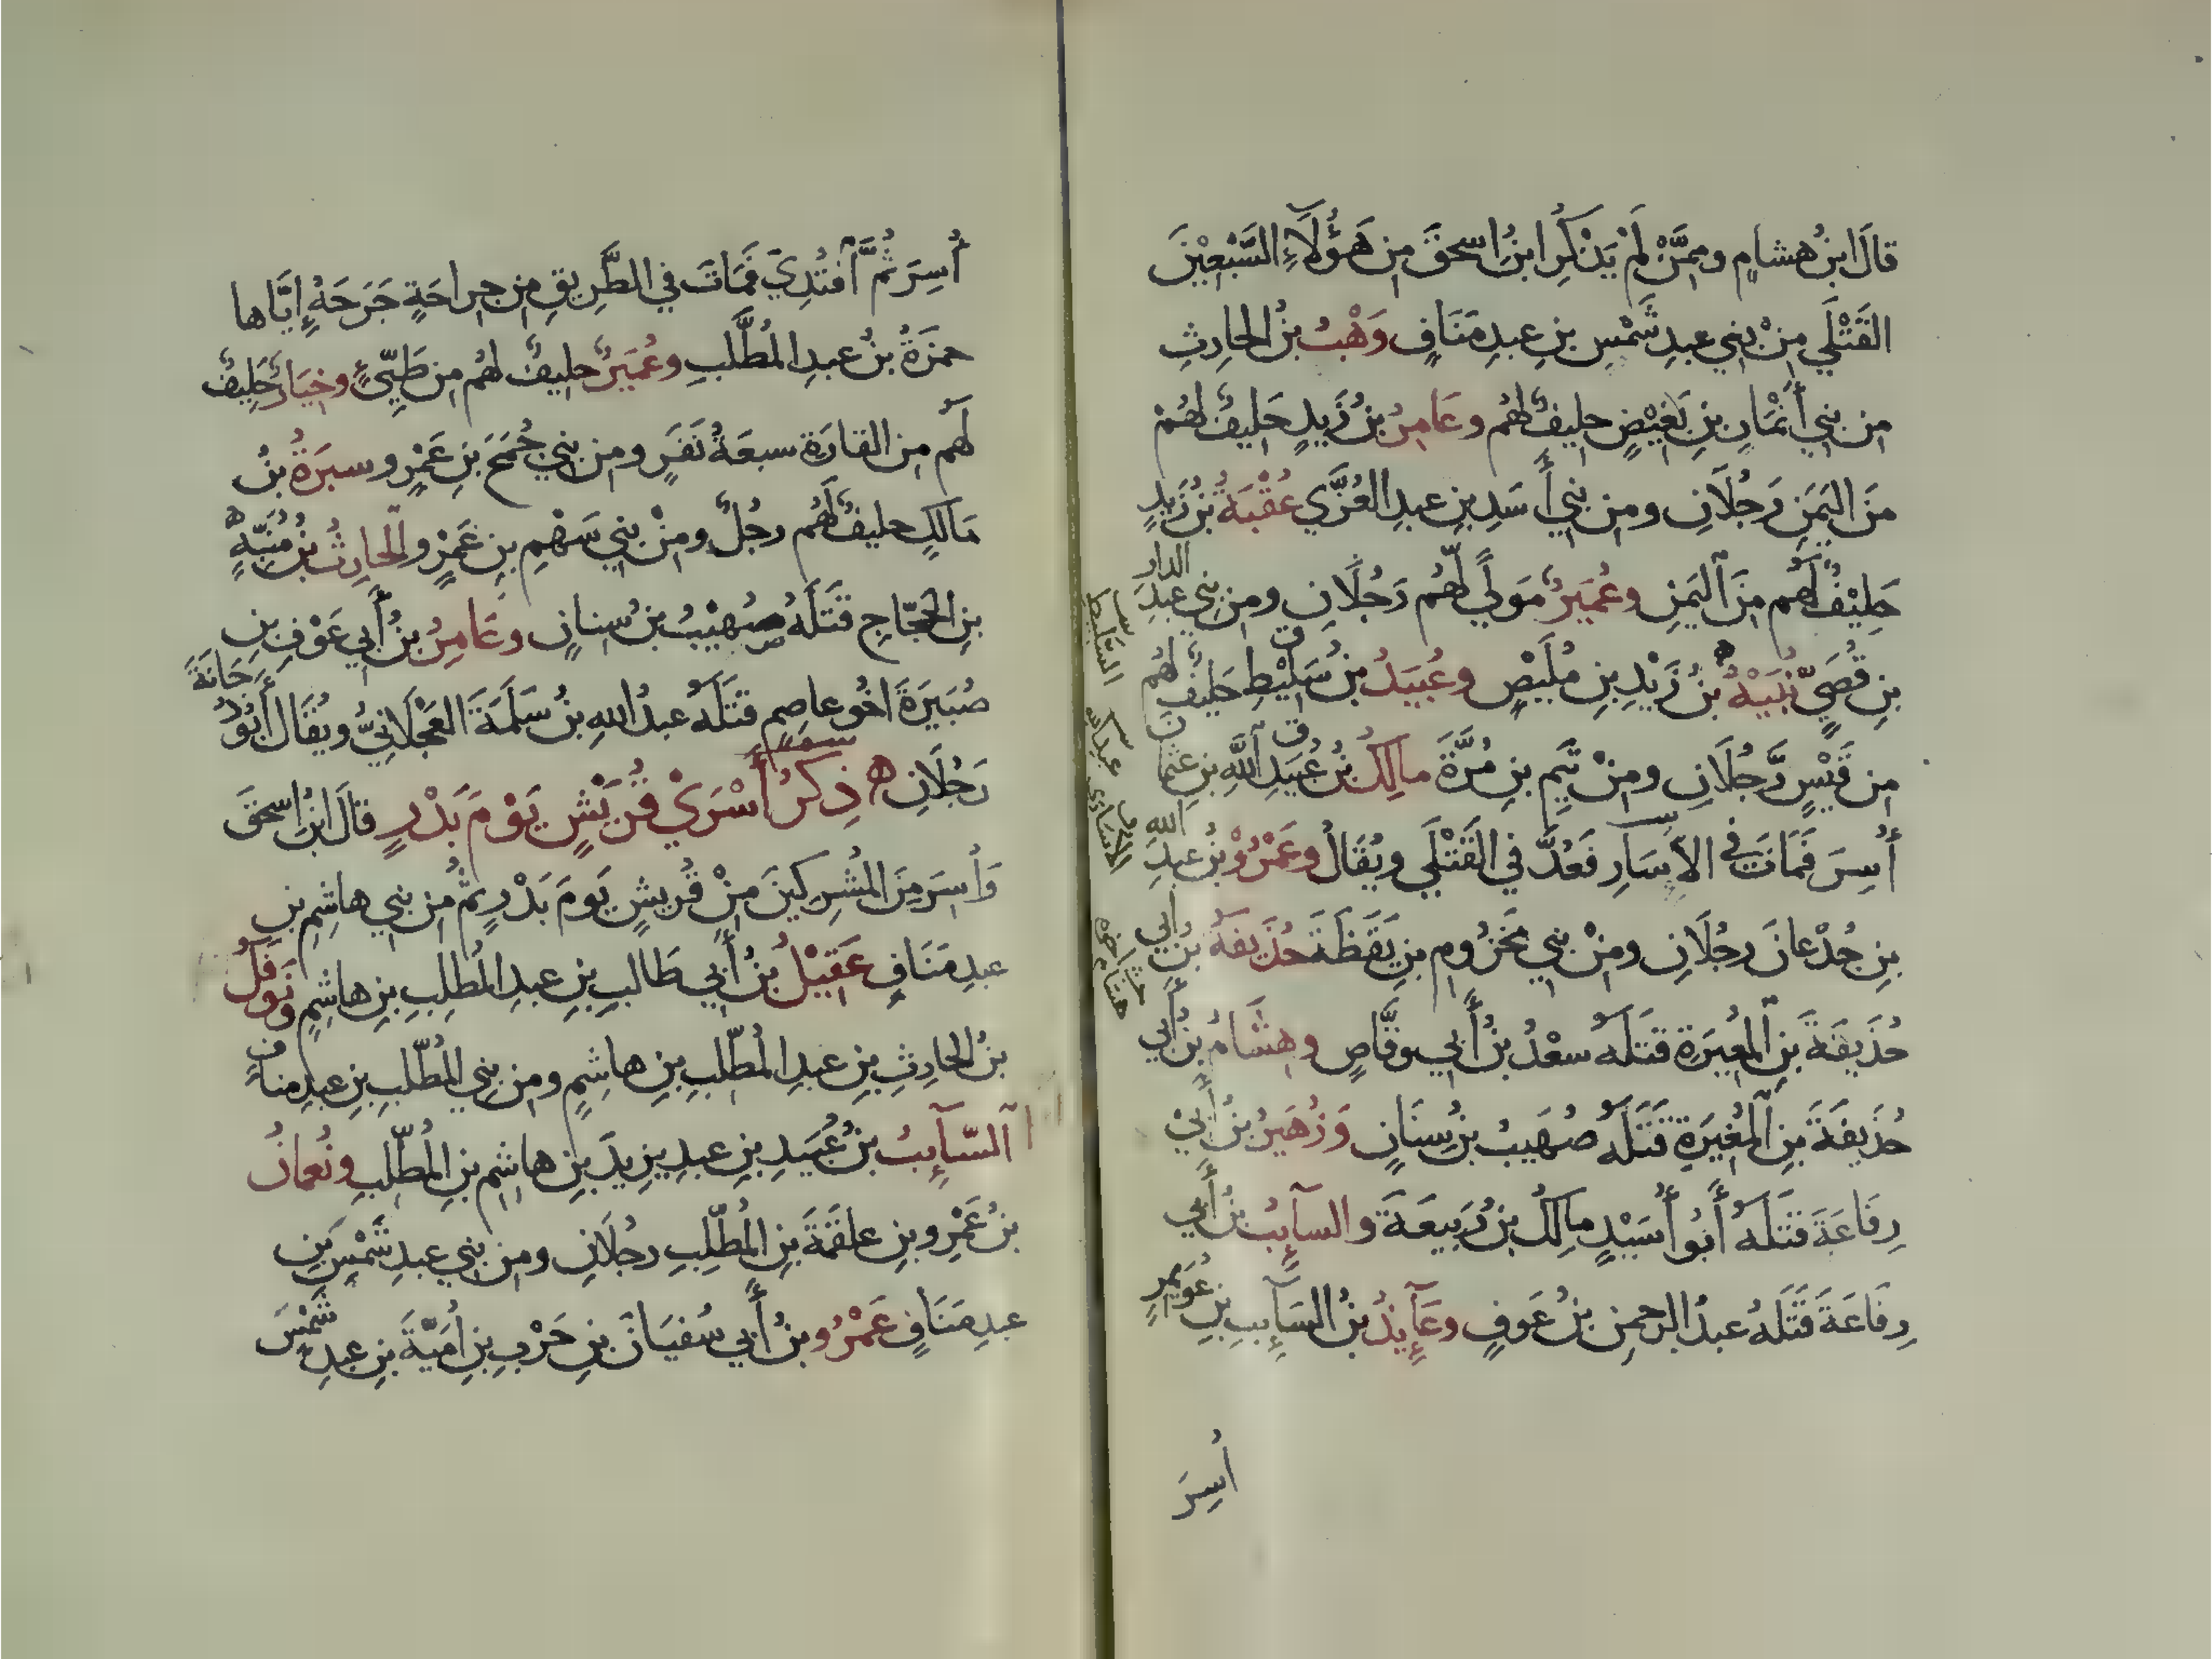 قالَ ابنُ هشامٍ وممَّنْ لمْ يَذْكُرِ ابنُ اسحقَ مِن هَؤُلَآءِ السَّبْعِيْنَ
القَتْلَي مِنْ بني عبدِ شَمْسِ بنِ عبدِ مَنَافٍ وَهْبُ بنُ الحارِثِ
مِن بني أَنْمَارِ بنِ بَغِيْضٍ حليفٌ لهُم وعَامِرُ بنُ زَيدٍ حَليفٌ لهُمْ
مَنَ اليَمَنِ رَجُلَانِ ومِن بني أَسَدِ بنِ عبدِ العُزَّي عُقْبَةُ بنُ زَيدٍ
حَلِيْفٌ لَهُم مِنَ اليَمَنِ وعُمَيرٌ مَولًي لهُم رَجُلَانِ ومِن بني عبدِ الدار
بنِ قُصَيٍّ نُبَيْهُ بنُ زَيْدِ بنِ مُلَيْصٍ وعُبَيدُ بنُ سَلِيْطٍ حَليفٌ لهُم
مِن قَيْسٍ رَجُلَانِ ومِنْ تَيمِ بنِ مُرَّةَ مالِكُ بنُ عُبَيدِ اللَّهِ بنِ عثمان
أُسِرَ فَمَاتَ في الاسَارِ فَعُدَّ في القَتْلَي ويُقَالُ وعَمْرُو بنُ عبدِ الله
بنِ جُدْعانَ رجُلَانِ ومِنْ بني مَخزُومِ بنِ يَقَظَةَ حُذَيفَةُ بنُ أبي
حُذَيفَةَ بنِ المُغِيرَةِ قتَلَهُ سعْدُ بنُ أَبي وقَّاصٍ وهِشَامُ بنُ أَبي
حُذَيفَةَ بنِ المُغِيَرةِ قَتَلَهُ صُهَيبُ بنُ سِنَانٍ وَزُهَيرُ بنُ أَبيْ
رِفَاعَةَ قتَلَهُ أَبُو أُسَيْدٍ مالِكُ بنُ رَبيعَةَ والسآئِبُ بنُ أَبي
رِفَاعَةَ قَتَلَهُ عبدُ الرحمنِ بنُ عَوفٍ وعَآئِذُ بنُ السَآئِبِ بنِ عُوَيمِرٍ
أُسِرَ
أُسِرَ ثُمَّ افتُدِيَ فمَاتَ في الطَّرِيقِ مِن جِراحَةٍ جَرَحَهُ إِيَّاها
حمزَةُ بنُ عبدِ المُطَّلبِ وعُمَيرٌ حليفٌ لهُم مِن طَيِّيءٍ وخِيَارٌ حَلِيفٌ
لَهُم مِن القارَةِ سبعَةُ نَفَرٍ ومِن بني جُمَحَ بنِ عَمْرٍو سبرَةُ بنُ
مَالكٍ حليفٌ لَهُم رجُلٌ ومِنْ بني سَهْمِ بنِ عَمْرٍو الحارِثُ بنُ مُنَبِّهِ
بنِ الحجّاجِ قتَلَهُ صُهَيْبُ بنُ سِنانٍ وعَامِرُ بنُ أَبي عَوْفِ بنِ
صُبَيرَةَ اخُو عاصِمٍ قتَلَهُ عبدُ اللهِ بنُ سَلَمَةَ العَجْلَانيُّ ويُقَالُ أَبُو دُجَانَةَ
رَجُلَانِ ه ذِكرُ أَسْرَيْ قُرَيْشٍ يَوْمَ بَدْرٍ قالَ ابنُ اسحقَ
وَأُسِرَ مِنَ المُشرِكينَ مِنْ قُريشٍ يَومَ بَدْرٍ ثمَّ مِن بني هاشِمِ بنِ
عبدِ مَنَافٍ عَقِيْلُ بنُ أَبي طَالبِ بنِ عبدِ المُطلبِ بنِ هاشِمٍ ونَوفَلُ
بنُ الحارِثِ بنِ عبدِ المُطّلبِ بنِ هاشِمٍ ومِن بني المُطّلبِ بنِ عبدِ مناف
السّآئِبُ بنُ عُبَيدِ بنِ عبدِ يزيدَ بنِ هاشِمِ بنِ المُطّلِبِ ونُعمانُ
بنُ عَمْرِو بنِ علقَمَةَ بنِ المُطّلِبِ رجُلَانِ ومِن بني عبدِ شَمْسِ بنِ
عبدِ مَنَافٍ عَمْرُو بنُ أَبي سُفيَانَ بنِ حَرْبِ بنِ أُمَيَّةَ بنِ عبدِ شَمْسَ